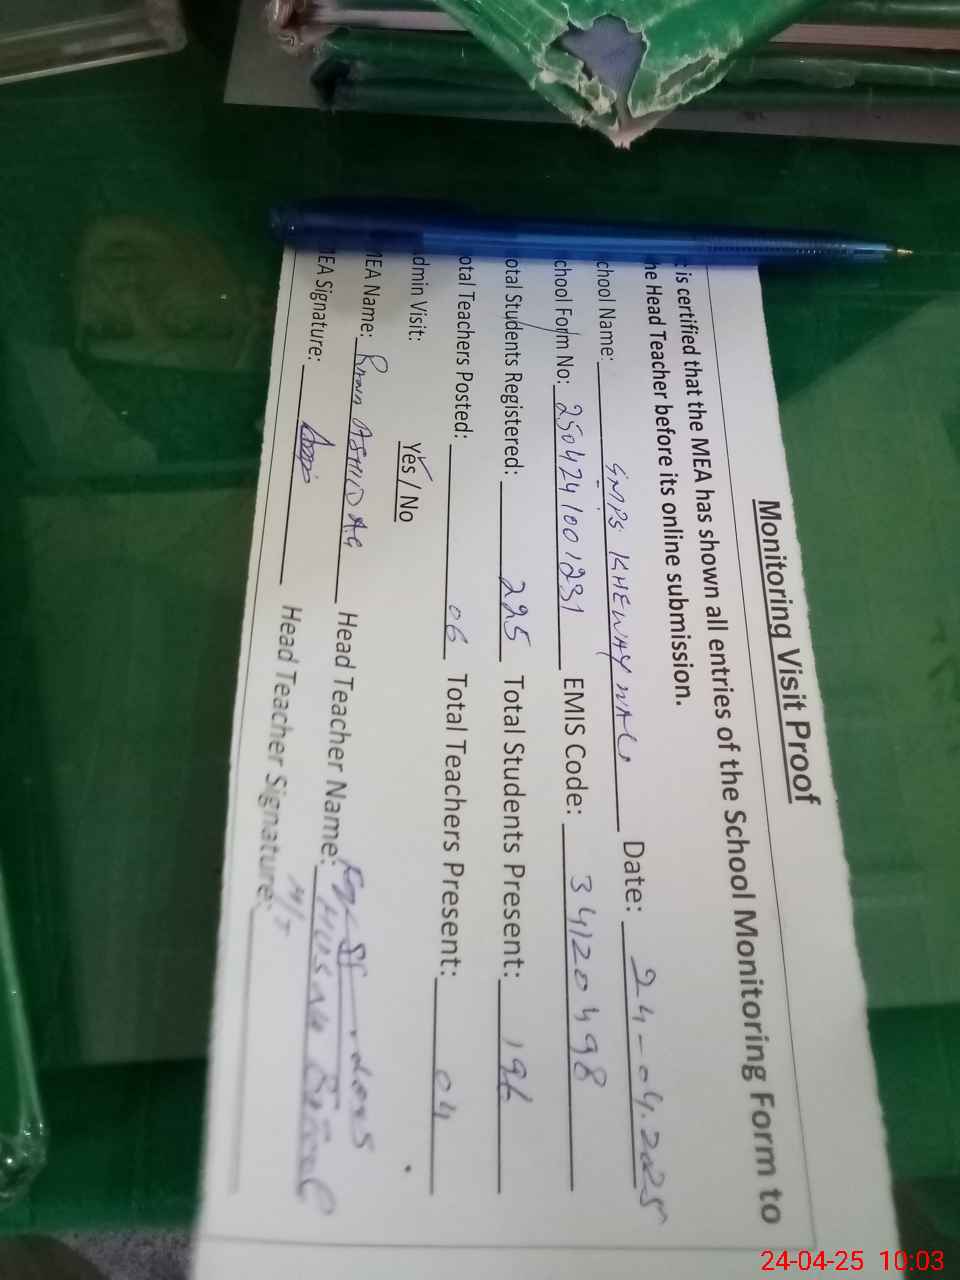 Monitoring Visit Proof
t is certified that the MEA has shown all entries of the School Monitoring Form to
he Head Teacher before its online submission.
chool Name: GMPS. KHEWAY WALI Date: 24-04.2025
chool Form No: 2504241001231 EMIS Code: 34120498
otal Students Registered: 225 Total Students Present: 196
otal Teachers Posted: 06 Total Teachers Present: 04
dmin Visit: Yes / No
MEA Name: ASHIQ Head Teacher Name: HUSNA
MEA Signature: Head Teacher Signature:
24-04-25 10:03